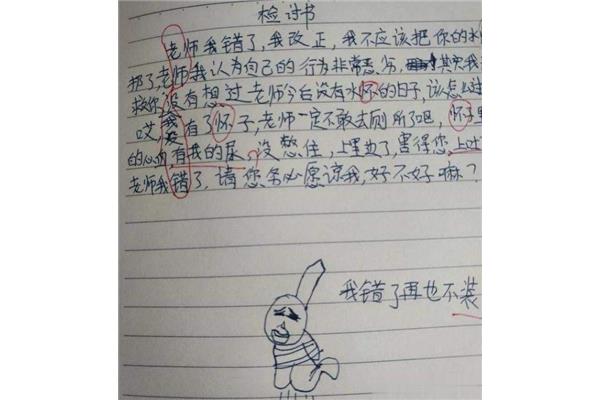 检讨书
老师我错了,我改正,我不应该把你的水
了,老师我认为自己的行为非常恶劣,其实我
救你,没有想过老师今后没有水怀的日子,该怎么过
哎,我没有了怀子,老师一定不敢去厕所了吧,怀子里
的 有我的尿,没憋住,上里边了,害得您上吐
老师我错了,请您务必愿谅我,好不好嘛?
我错了再也不装